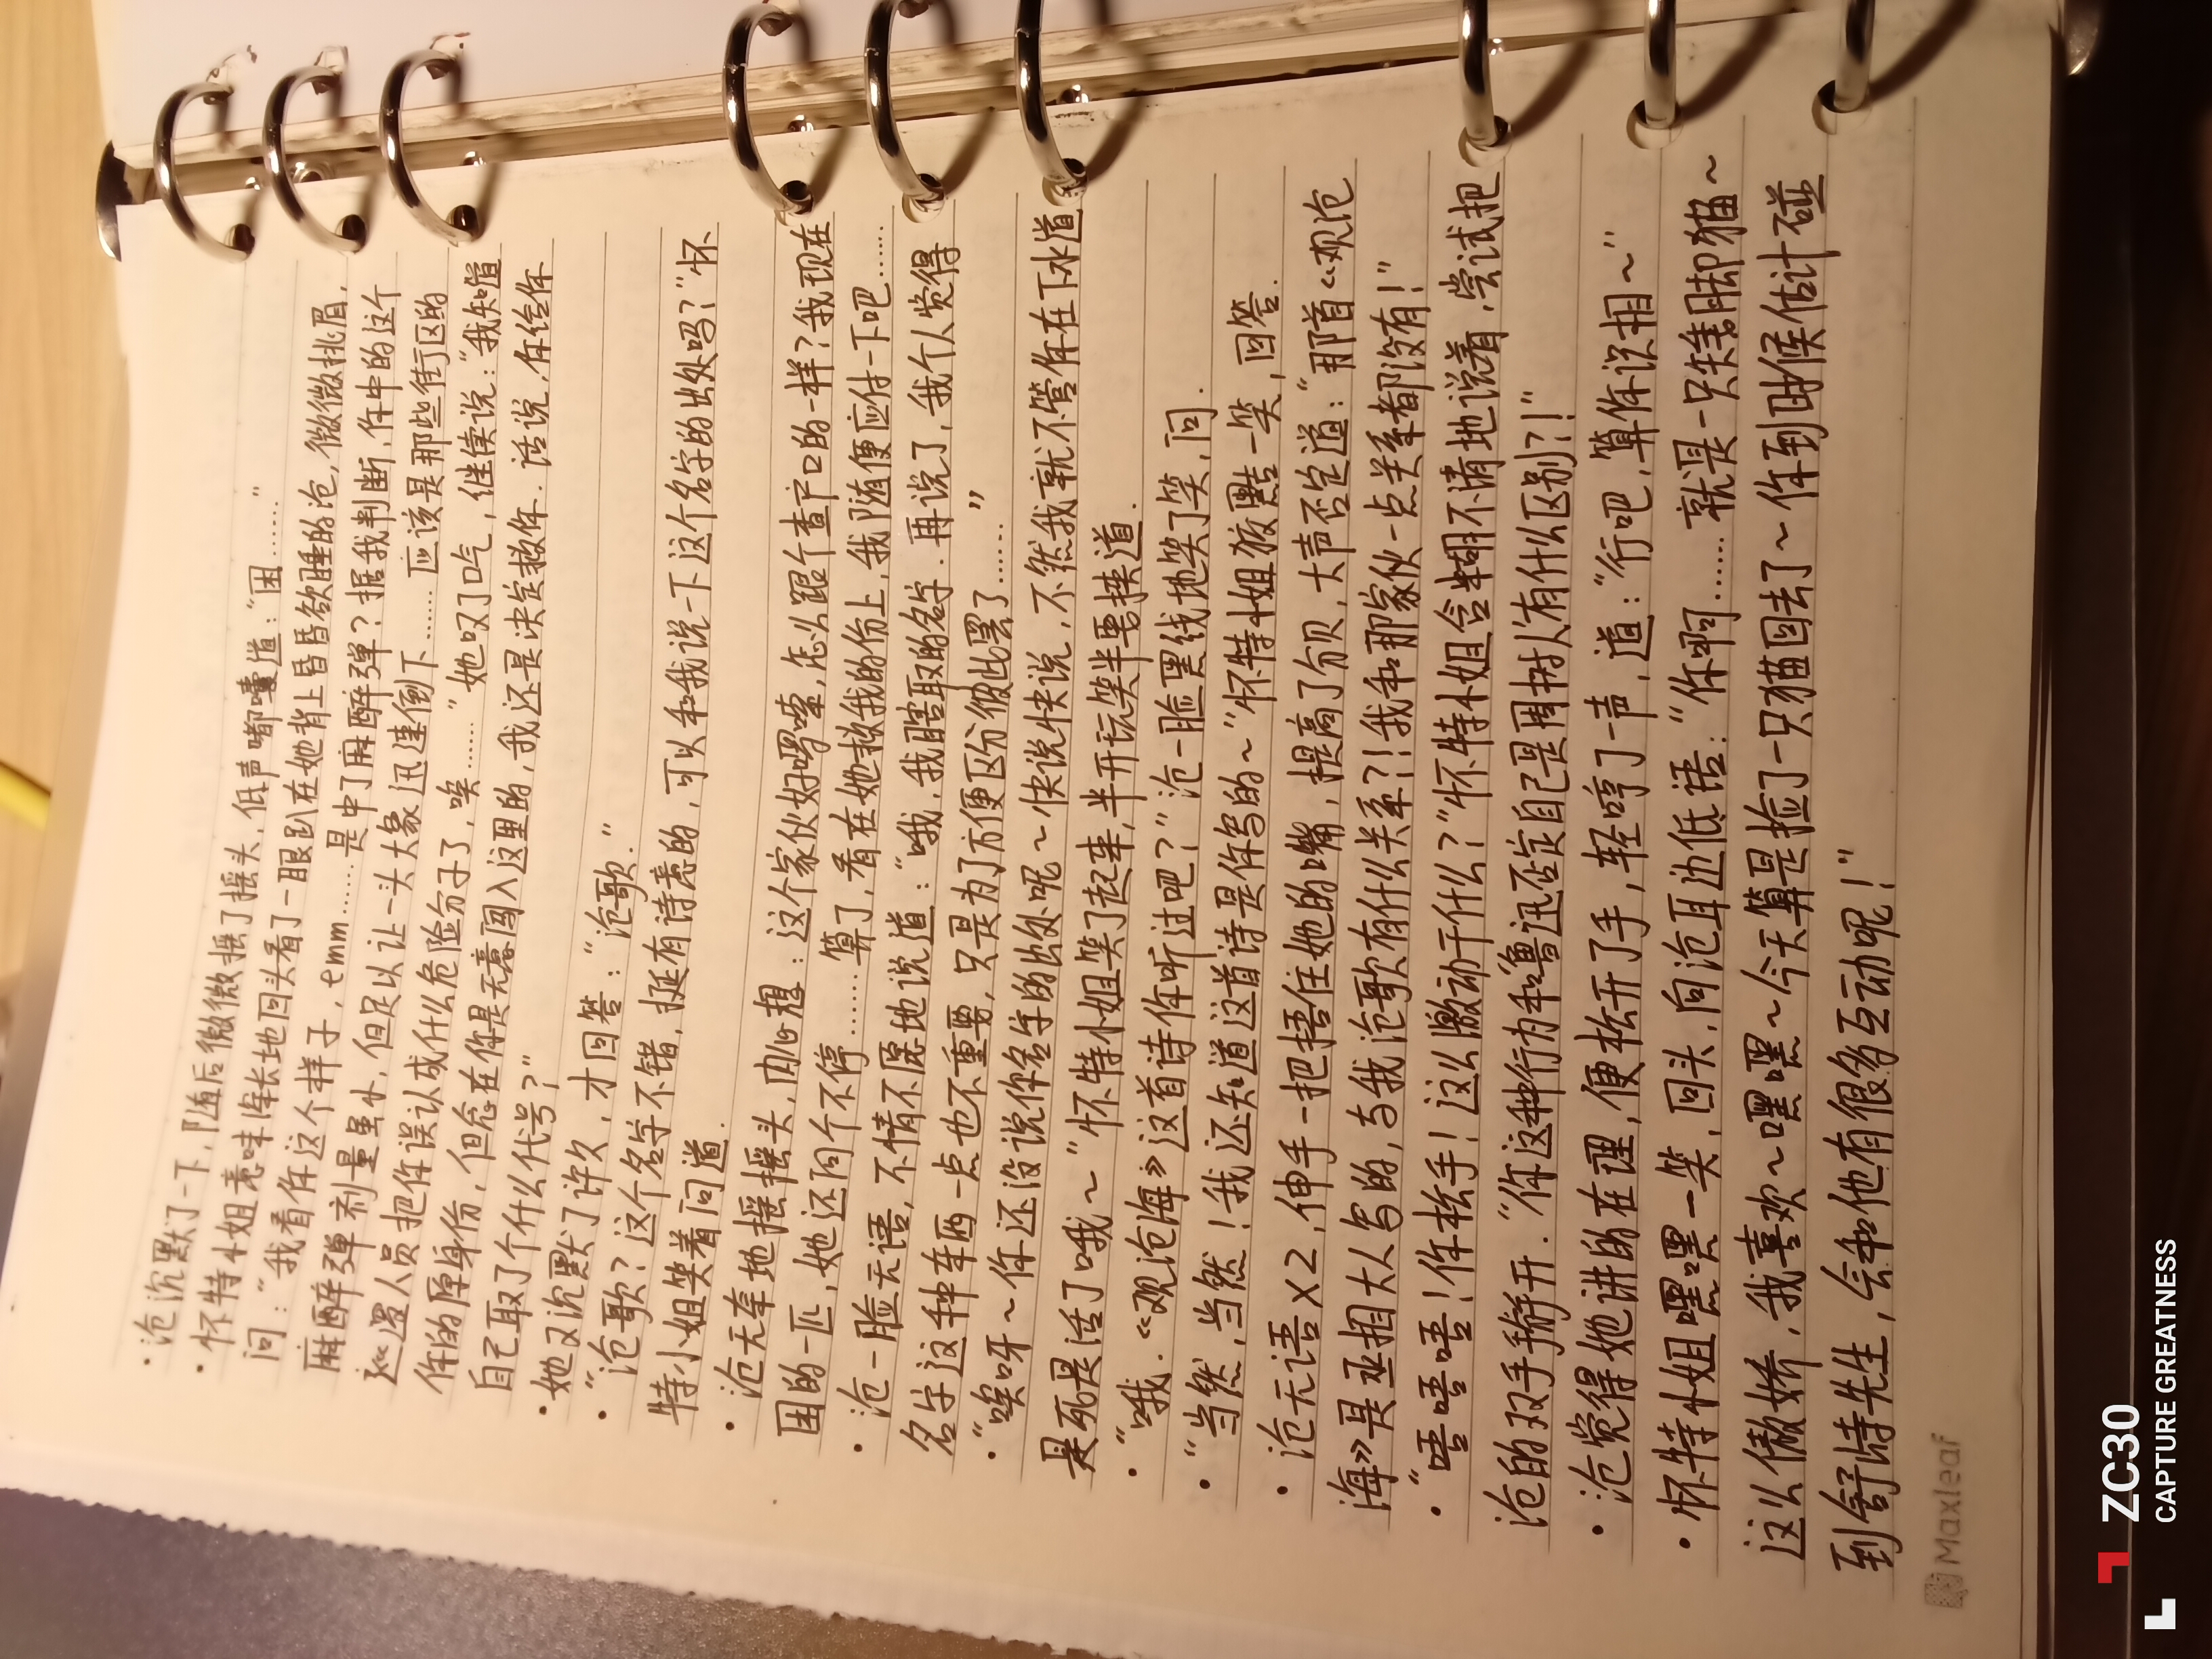 ·沧沉默了一下，随后微微摇了摇头，低声嘟囔道：“困……”
·怀特小姐意味深长地回头看了一眼趴在她背上昏昏欲睡的沧，微微挑眉，
问：“我看你这个样子，emm……是中了麻醉弹？据我判断，你中的这个
麻醉弹剂量虽小，但足以让一头大象迅速倒下……应该是那些街区的
巡逻人员把你误认成什么危险分子了，唉……”她叹了口气，继续说：“我知道
你的原身份，但念在你是无意闯入这里的，我还是决定救你．话说，你给你
自己取了个什么代号？”
·她又沉默了许久，才回答：“沧歌．”
·“沧歌？这个名字不错，挺有诗意的，可以和我说一下这个名字的出处吗？”怀
特小姐笑着问道．
·沧无奈地摇摇头，内心想：这个家伙好啰嗦，怎么跟个查户口的一样？我现在
困的一匹，她还问个不停……算了，看在她救我的份上，我随便应付一下吧……
·沧一脸无语，不情不愿地说道：“哦，我瞎取的名字．再说了，我个人觉得
名字这种东西一点也不重要，只是为了方便区分彼此罢了……”
·“唉呀～你还没说你名字的出处呢～快说快说，不然我就不管你在下水道
是死是活了哦～”怀特小姐笑了起来，半开玩笑半要挟道．
·“哦．《观沧海》这首诗你听过吧？”沧一脸黑线地笑了笑，问．
·“当然，当然！我还知道这首诗是你写的～”怀特小姐狡黠一笑，回答．
·沧无语X2，伸手一把捂住她的嘴，提高了分贝，大声否定道：“那首《观沧
海》是丞相大人写的，与我沧歌有什么关系？！我和那家伙一点关系都没有！”
·“唔唔唔！你松手！这么激动干什么？”怀特小姐含糊不清地说着，尝试把
沧的双手掰开．“你这种行为和鲁迅否定自己是周树人有什么区别？！”
·沧觉得她讲的在理，便松开了手，轻哼了一声，道：“行吧，算你识相～”
·怀特小姐嘿嘿一笑，回头，向沧耳边低语：“你啊……就是一只短脚猫～
这么傲娇，我喜欢～嘿嘿～今天算是捡了一只猫回去了～你到时候估计碰
到舒诗先生，会和他有很多互动呢！”
Maxleaf
ZC30
CAPTURE GREATNESS